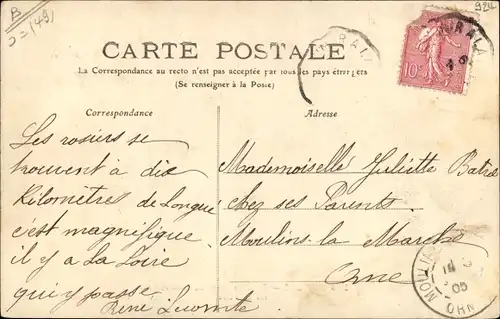 B
924
CARTE POSTALE
La Correspondance au recto n'est pas acceptée par tous les pays étrangers
(Se renseigner à la Poste)
10c
Correspondance
Les rosiers se
trouvent à dix
Kilomètres de Longué
c'est magnifique
il y a La Loire
qui y passe
René Lecomte
Adresse
Mademoiselle Juliette
chez ses Parents
Moulins-la Marche
Orne
05